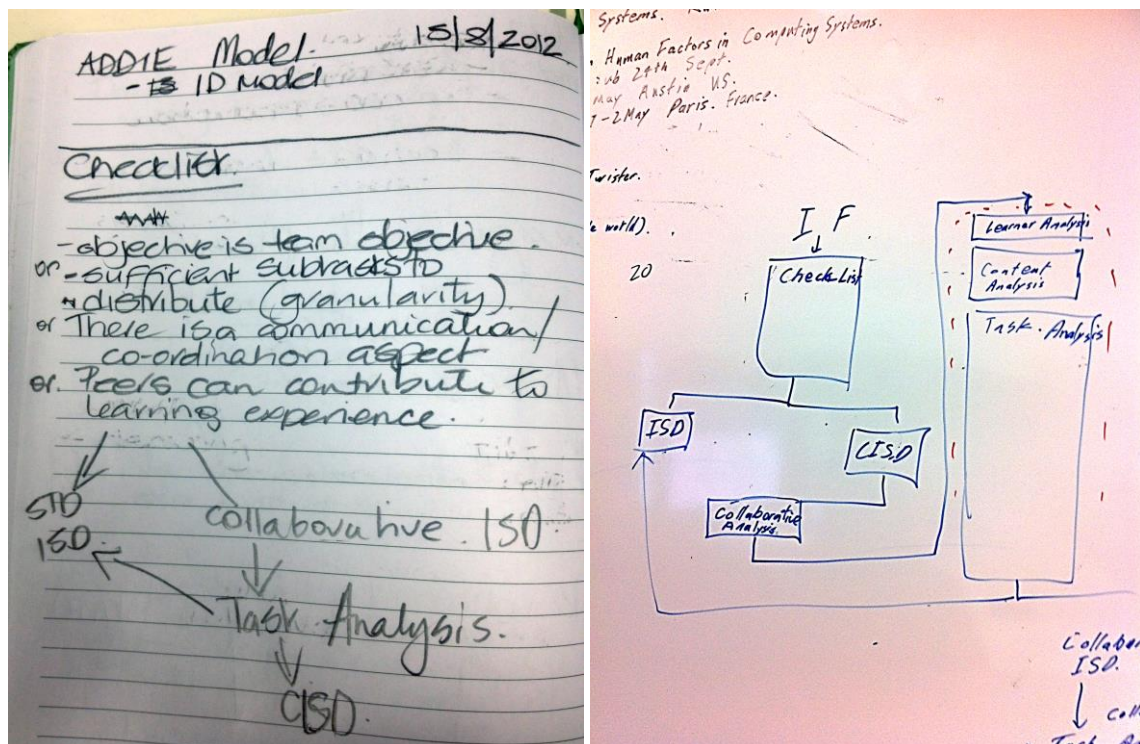 ADDIE Model. 15/8/2012
- ID Model
Checklist
- objective is team objective.
or - sufficient subtasks STD
distribute (granularity)
or There is a communication/
co-ordination aspect
or. Peers can contribute to
learning experience.
STD
ISD.
collaborative. ISD.
Task Analysis.
CISD.
Systems.
Human Factors in Computing Systems.
24th Sept.
May Austin U.S.
-2 May Paris. France.
Twister.
world).
20
I F
CheckList
ISD
CISD
Collaborative
Analysis.
Learner Analysis
Content
Analysis
Task. Analysis
ISD.